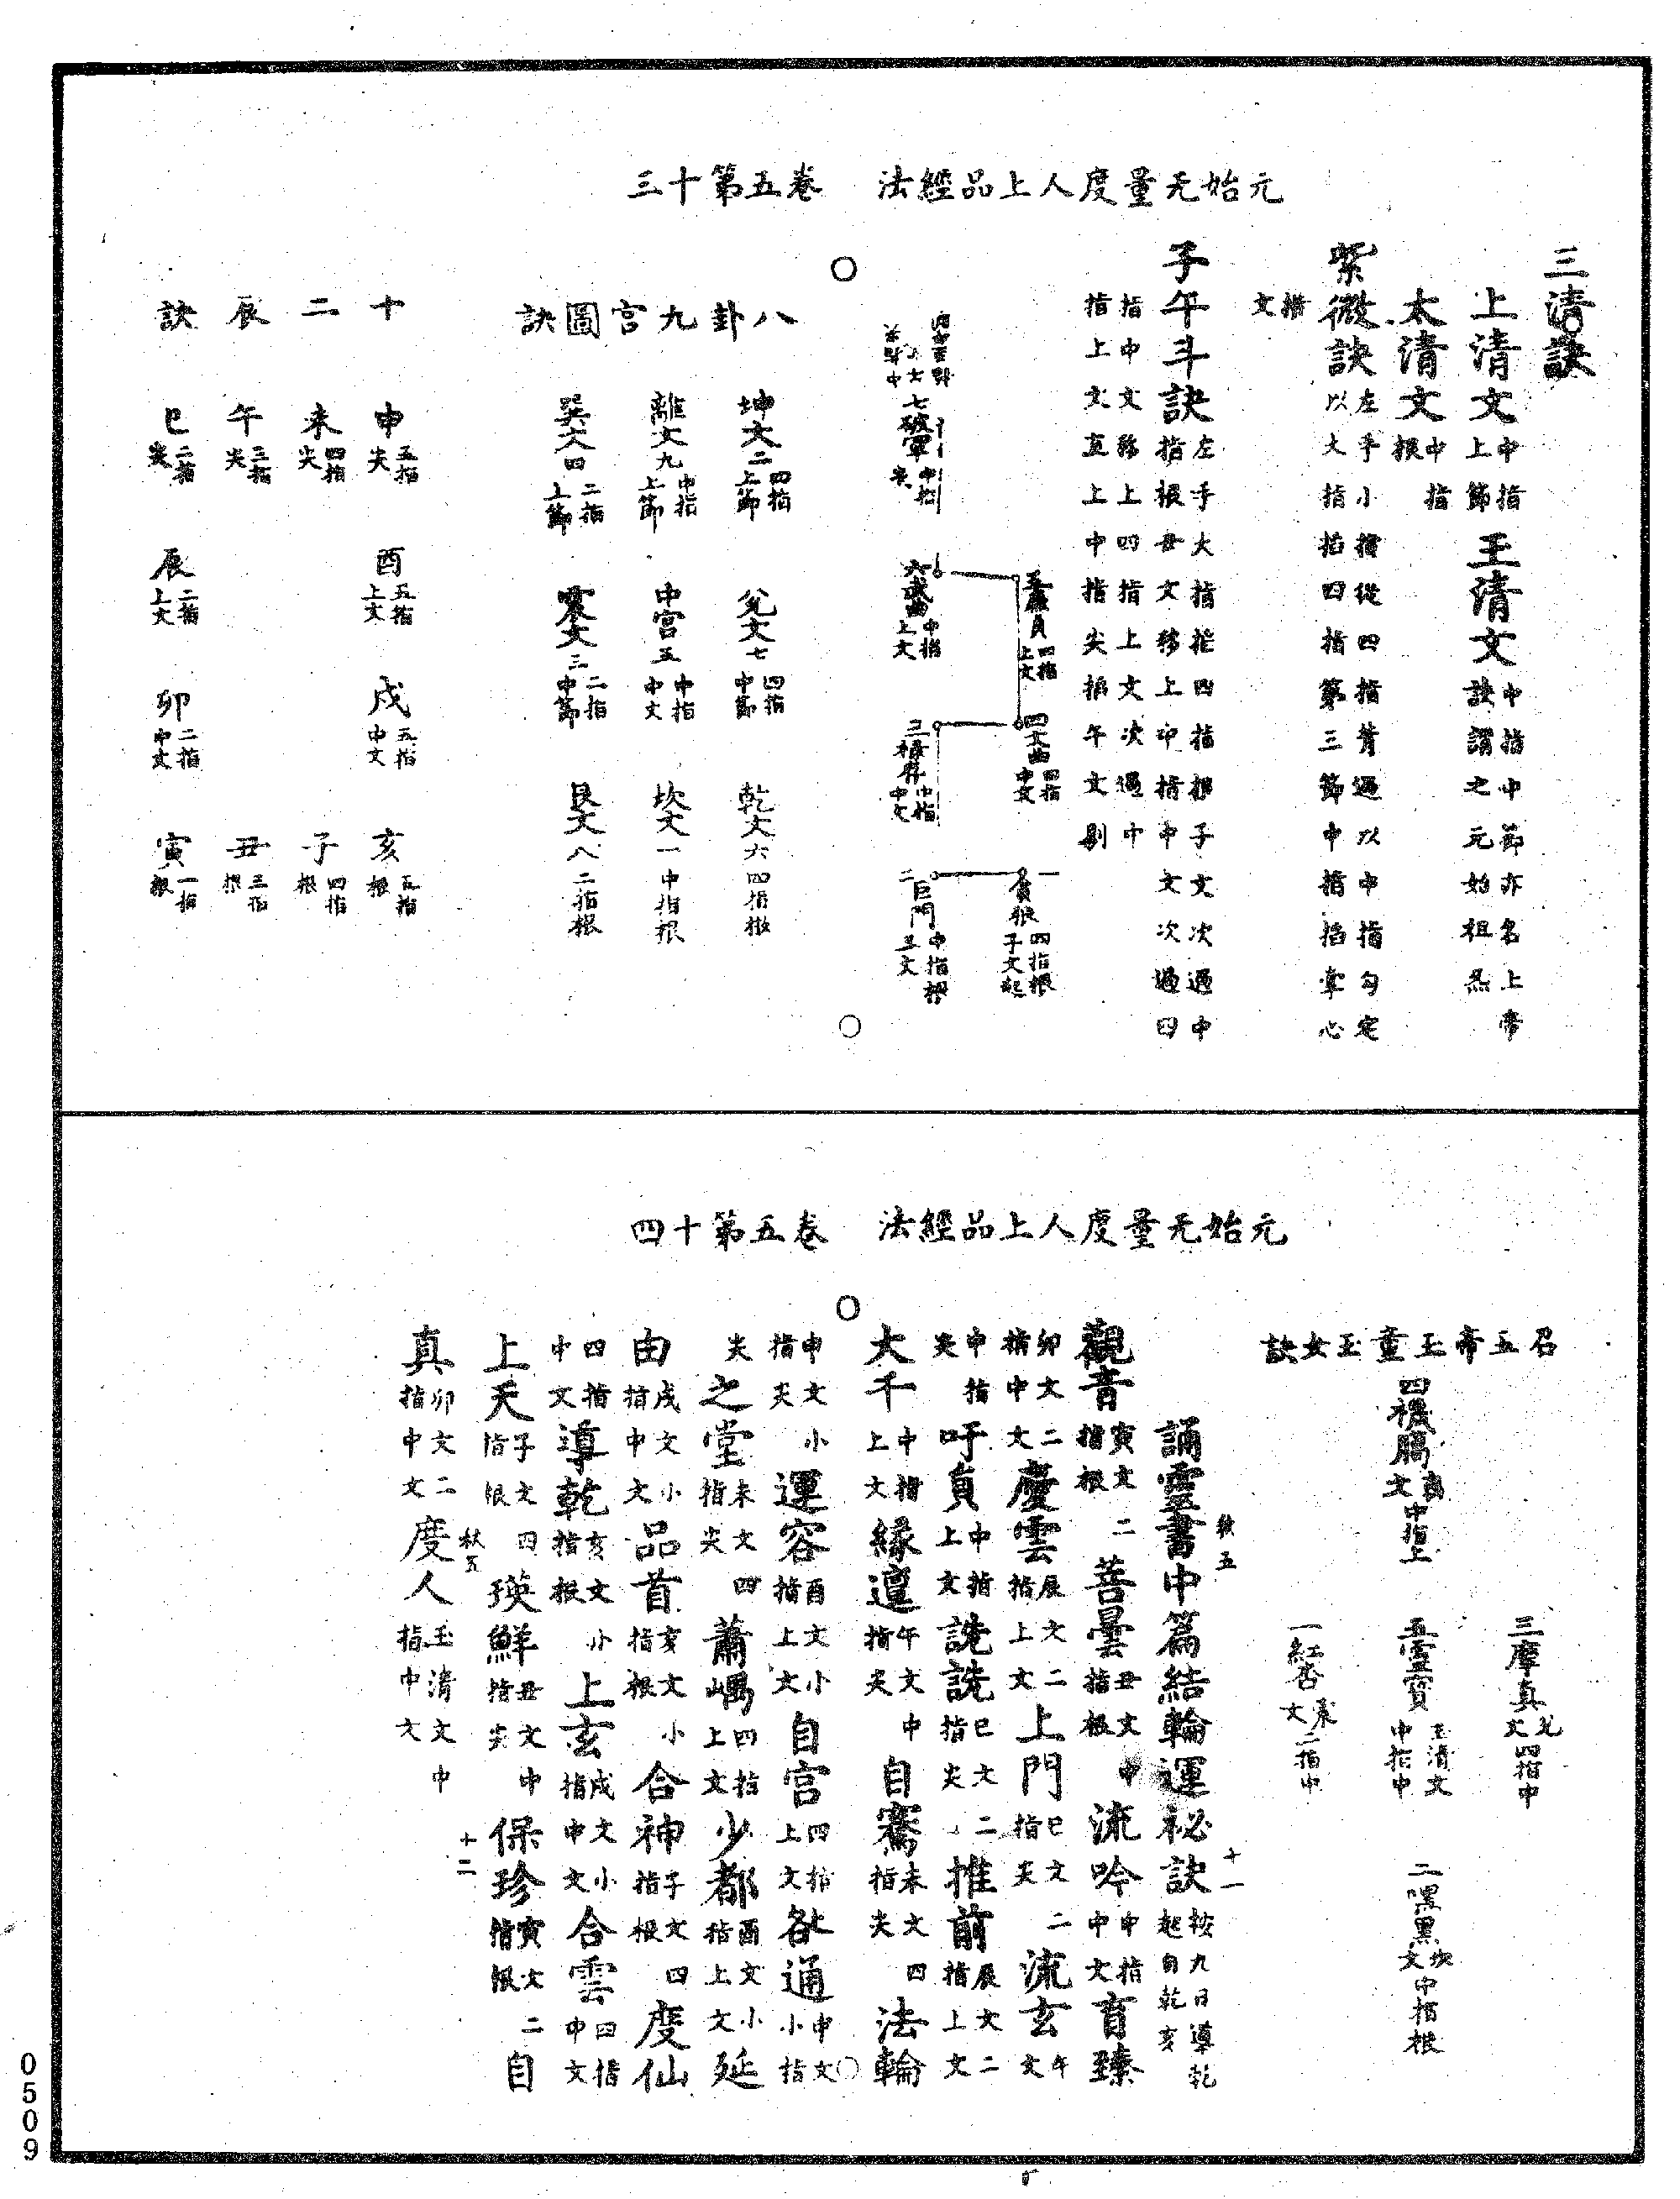 元始无量度人上品經法　卷五第十三
三清訣
上清文中指上節　玉清文中指中節亦名上帝訣謂之元始祖炁
太清文中指根
紫微訣左手小指從四指背過以中指勾定以大指掐四指第三節中指掐掌心橫文
子午斗訣左手大指掐四指根子文次過中指根丑文移上中指中文次過四指中文移上四指上文次過中指上文直上中指尖掐午文剔
七破軍中指尖
六武曲中指上文
五廉貞四指上文
四文曲四指中文
三祿存中指中文
二巨門中指根丑文
一貪狼四指根子文起
八卦九宮圖訣
坤文二四指上節　兌文七四指中節　乾文六四指根
離文九中指上節　中宮五中指中文　坎文一中指根
巽文四二指上節　震文三二指中節　艮文八二指根
十二辰訣
申五指尖　酉五指上文　戌五指中文　亥五指根
未四指尖　子四指根
午三指尖　丑三指根
巳二指尖　辰二指上文　卯二指中文　寅二指根
元始无量度人上品經法　卷五第十四
召五帝玉童玉女訣
三摩真兌文四指中
四禐腸離文中指上　五靈寶玉清文中指中　二嘿黑坎文中指根
一紅杏震文二指中
誦靈書中篇結輪運祕訣按九日導乾起自乾亥
觀音寅文二指根　菩曇丑文中指根　流吟中指中文　育臻卯文二指中文　慶雲辰文二指上文　上門巳文二指尖　流玄午文中指尖　吁員中指上文　詵詵巳文二指尖　推前辰文二指上文
大千中指上文　緣邅午文中指尖　自騫未文四指尖　法輪申文小指尖　運容酉文小指上文　自宮四指上文　各通申文小指尖　之堂未文四指尖　蕭嵎四指上文　少都酉文小指上文　延由戌文小指中文　品首亥文小指根　合神子文四指根　度仙四指中文　導乾亥文小指根　上玄戌文小指中文　合雲四指中文
上天子文四指根　瑛鮮丑文中指尖　保珍寅文二指根　自真卯文二指中文　度人玉清文中指中文
秋五　十一
秋五　十二
0509